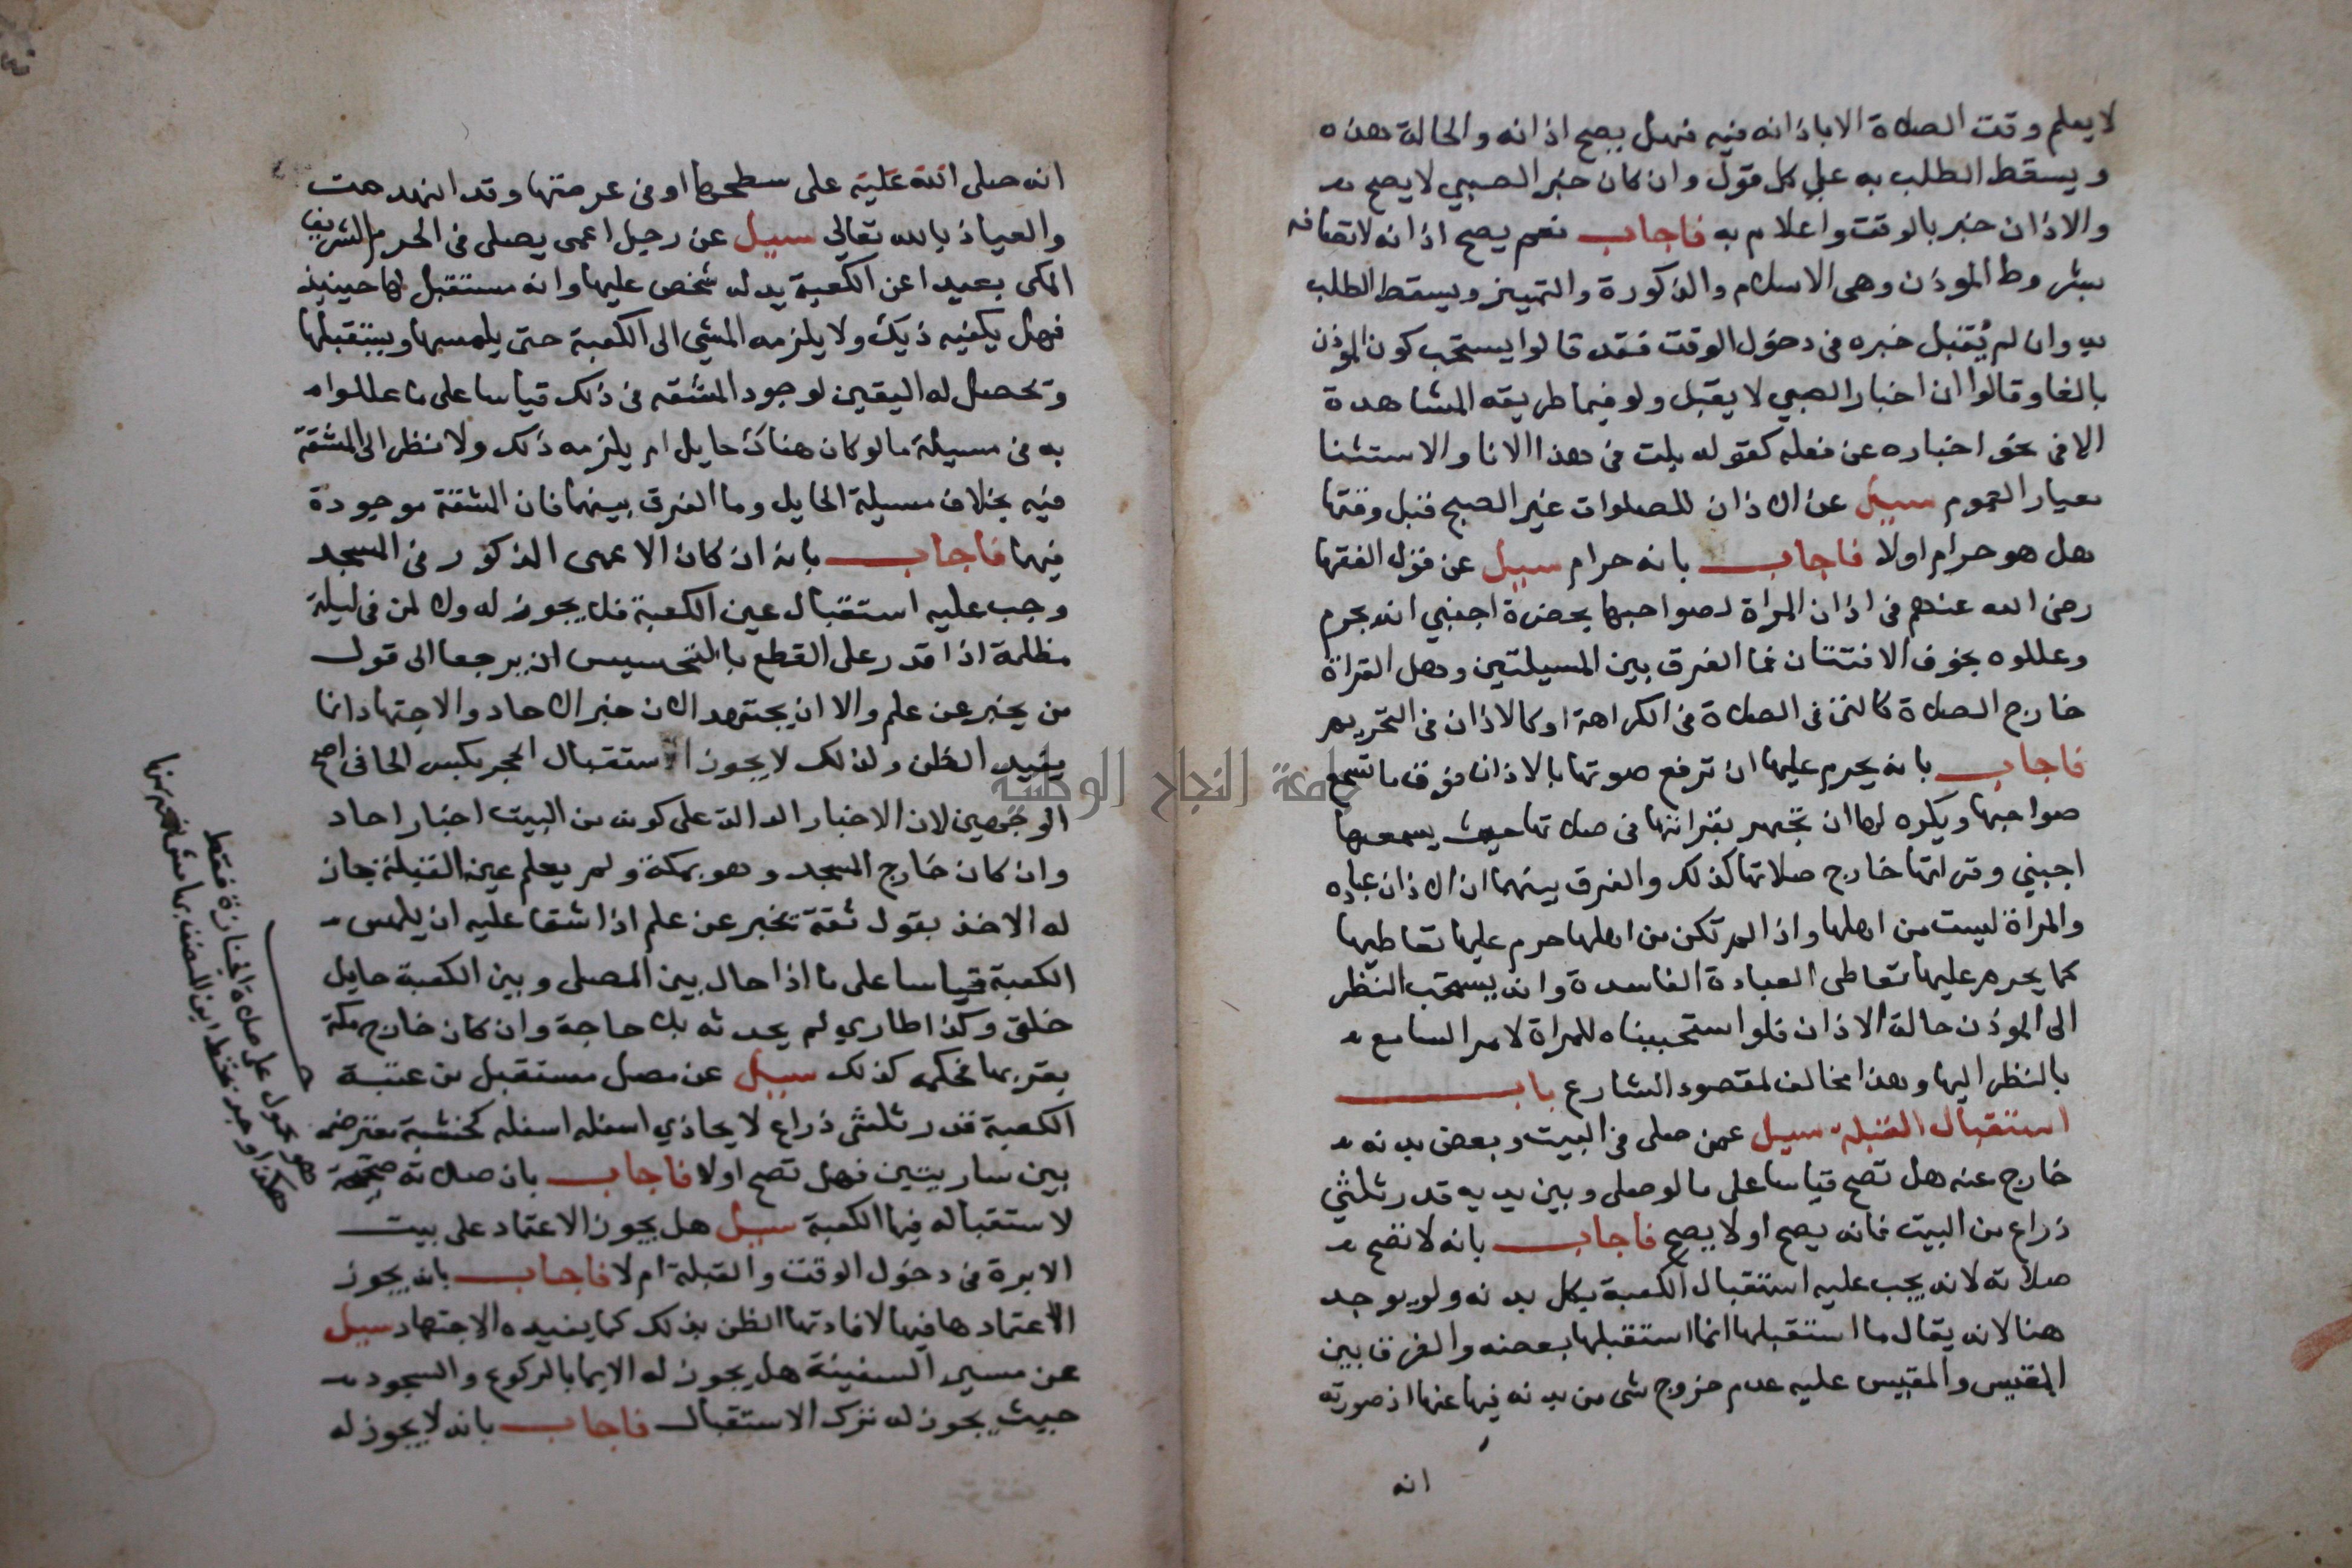 لا يعلم وقت الصلاة الا باذانه فيه فهل يصح اذانه والحالة هذه
ويسقط الطلب به على كل قول وان كان خبر الصبي لا يصح
والاذان خبر بالوقت واعلام به فاجاب نعم يصح اذانه لاتصافه
بشروط الموذن وهى الاسلام والذكورة والتمييز ويسقط الطلب
به وان لم يُقبل خبره فى دخول الوقت فقد قالوا يستحب كون الموذن
بالغا وقالوا ان اخبار الصبي لا يقبل ولو فيما طريقه المشاهدة
الا فى نحو اخباره عن فعله كقوله بلت فى هذا الانا والاستثنا
معيار العموم سيل عن الاذان للصلوات غير الصبح قبل وقتها
هل هو حرام اولا فاجاب بانه حرام سيل عن قول الفقها
رضى الله عنهم فى اذان المراة لصواحبها بحضرة اجنبي انه يحرم
وعللوه بخوف الافتتان فما الفرق بين المسيلتين وهل القراة
خارج الصلاة كالتى فى الصلاة فى الكراهة او كالاذان فى التحريم
فاجاب بانه يحرم عليها ان ترفع صوتها بالاذان فوق ما تسمع
صواحبها ويكره لها ان تجهر بقراتها فى صلاتها حيث يسمعها
اجنبي وقراتها خارج صلاتها كذلك والفرق بينهما ان الاذان عبادة
والمراة ليست من اهلها واذا لم تكن من اهلها حرم عليها تعاطيها
كما يحرم عليها تعاطى العبادة الفاسدة وانه يستحب النظر
الى الموذن حالة الاذان فلو استحببناه للمراة لامر السامع
بالنظر اليها وهذا مخالف لمقصود الشارع باب
استقبال القبلة سيل عمن صلى فى البيت وبعض بدنه
خارج عنه هل تصح قياسا على ما لو صلى وبين يديه قدر ثلثي
ذراع من البيت فانه يصح اولا يصح فاجاب بانه لا تصح
صلاته لانه يجب عليه استقبال الكعبة بكل بدنه ولم يوجد
هنا لانه يقال ما استقبلها انما استقبلها بعضه والفرق بين
المقيس والمقيس عليه عدم خروج شى من بدنه فيها عنها اذ صورته
انه
انه صلى الله عليه على سطحها او فى عرصتها وقد انهدمت
والعياذ بالله تعالي سيل عن رجل اعمى يصلى فى الحرم الشريف
المكى بعيدا عن الكعبة يدله شخص عليها وانه مستقبل لها حينيذ
فهل يكفيه ذلك ولا يلزمه المشي الى الكعبة حتى يلمسها ويستقبلها
وتحصل له اليقين لوجود المشقه فى ذلك قياسا على ما عللوا
به فى مسيلة ما لو كان هناك حايل ام يلزمه ذلك ولا نظر الى المشقة
فيه بخلاف مسيلة الحايل وما الفرق بينهما فان المشقة موجودة
فيها فاجاب بانه ان كان الاعمى المذكور فى المسجد
وجب عليه استقبال عين الكعبة فلا يجوز له ولا لمن فى ليلة
مظلمة اذا قدر على القطع بالتحسيس ان يرجعا الى قول
من يخبر عن علم والا ان يجتهد الان خبر الاحاد والاجتهاد انما
يفيد الظن ولذلك لا يجوز الاستقبال الحجر بكسر الحا فى اصح
الوجهين لان الاخبار الدالة على كونه من البيت اخبار احاد
وان كان خارج المسجد وهو بمكة ولم يعلم عين القبلة جاز
له الاخذ بقول ثقة تخبر عن علم اذا شقا عليه ان يلمس
الكعبة قياسا على ما اذا حال بين المصلى وبين الكعبة حايل
خلقى وكذا طاري لم يحدثه بلا حاجة وان كان خارج مكة
بقربها فحكمه كذلك سيل عن مصل مستقبل من عتبة
الكعبة قدر ثلثى ذراع لا يحاذي اسفله اسفله كخشبة معترضة
بين ساريتين فهل تصح اولا فاجاب بان صلاته صحيحة
لاستقباله فيها الكعبة سيل هل يجوز الاعتماد على بيت
الابرة فى دخول الوقت والقبلة ام لا فاجاب بانه يجوز
الاعتماد ها فيها لافادتها الظن بذلك كما يفيده الاجتهاد سيل
عن مسير السفينة هل يجوز له الايما بالركوع والسجود
حيث يجوز له ترك الاستقبال فاجاب بانه لا يجوز له
هو محمول على صلاة الجنازة فقط
هكذا وجد بخط ابن المصنف بهامش نسخة منها
جامعة النجاح الوطنية